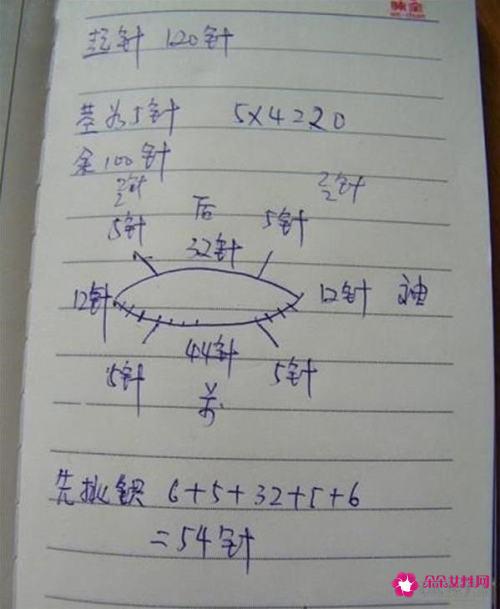 味全
wei-chuan
起针 120针
茎为5针 5X4=20
余100针
后
5针 32针 5针
12针 12针 袖
5针 44针 5针
前
先挑织 6+5+32+5+6
=54针
朵朵女性网